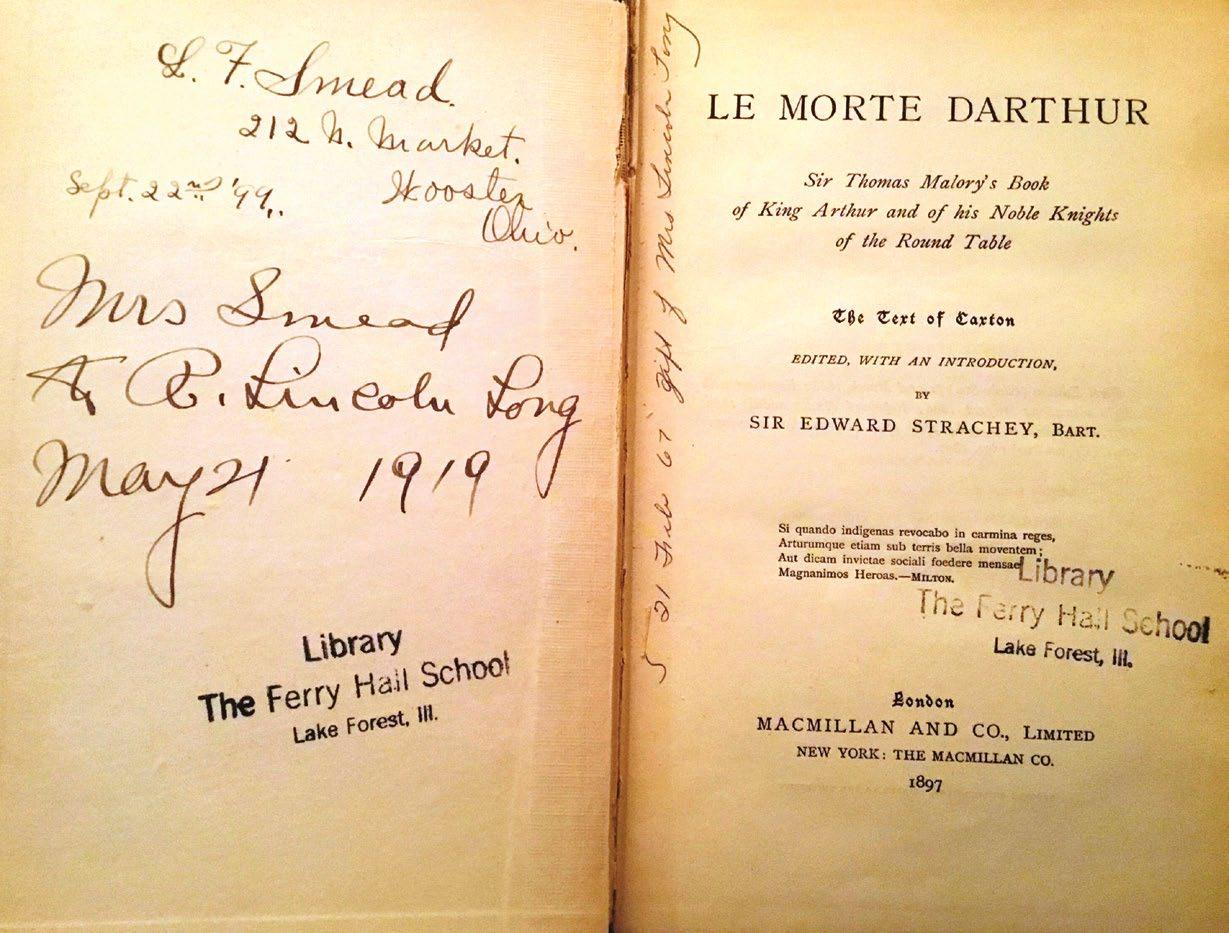 L. F. Smead.
212 N. Market.
Sept. 22nd '99. Wooster
Ohio.
Mrs Smead
to R. Lincoln Long
May 21 1919
Library
The Ferry Hall School
Lake Forest, Ill.
21 Feb 67 gift of Mrs Lincoln Long
LE MORTE DARTHUR
Sir Thomas Malory's Book
of King Arthur and of his Noble Knights
of the Round Table
The Text of Caxton
EDITED, WITH AN INTRODUCTION,
BY
SIR EDWARD STRACHEY, BART.
Si quando indigenas revocabo in carmina reges,
Arturumque etiam sub terris bella moventem;
Aut dicam invictae sociali foedere mensae
Magnanimos Heroas.—MILTON.
Library
The Ferry Hall School
Lake Forest, Ill.
London
MACMILLAN AND CO., LIMITED
NEW YORK: THE MACMILLAN CO.
1897